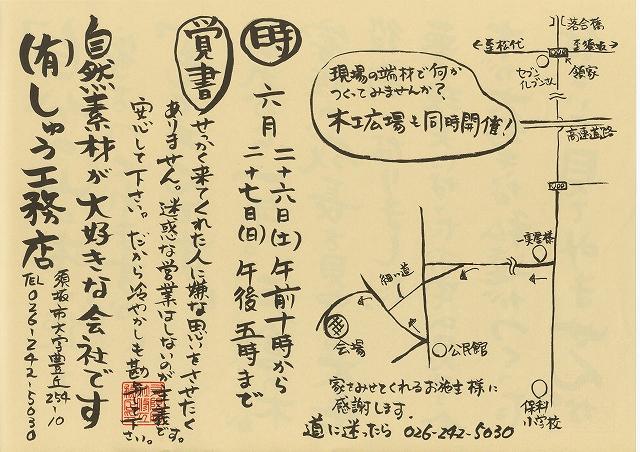 時
六月 二十六日(土) 午前十時から
二十七日(日) 午後五時まで
覚書
せっかく来てくれた人に嫌な思いをさせたく
ありません。迷惑な営業はしないのが主義です。
安心して下さい。だから冷やかしも勘弁して下さい。
自然素材が大好きな会社です
(有)しゅう工務店
須坂市大字豊丘254-10
TEL 026-242-5030
現場の端材で何か
つくってみませんか?
木工広場も同時開催!
落合橋
至松代
至須坂
セブン
イレブンさん
領家
高速道路
細い道
会場
公民館
保科
小学校
家をみせてくれるお施主様に
感謝します。
道に迷ったら 026-242-5030